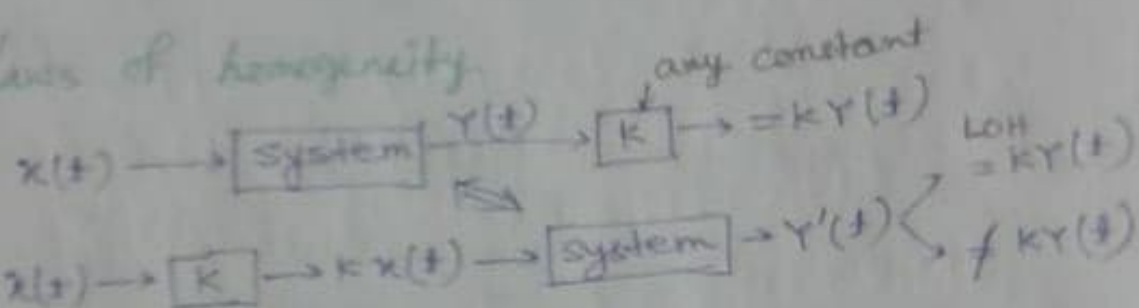 Laws of homogeneity
any constant
x(t) → system Y(t) → K → = KY(t)
x(t) → K → K x(t) → system → Y'(t)
LOH
= KY(t)
≠ KY(t)